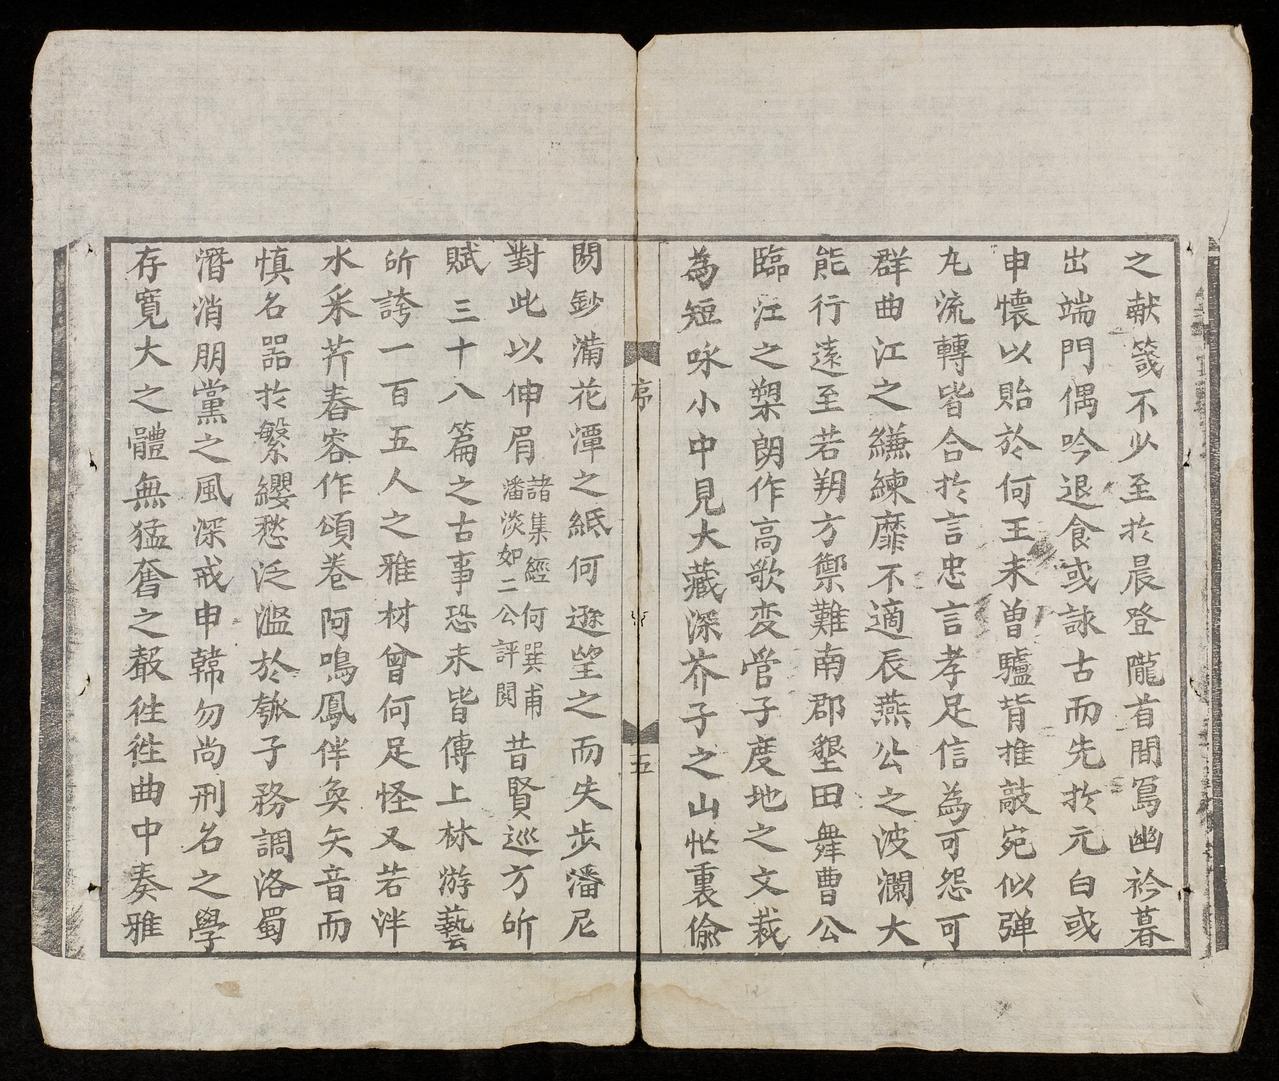 之献箴不少至扵晨登隴首間寫幽衿暮
出端門偶吟退食或詠古而先扵元白或
申懐以貽於何王未曽驢背推敲宛似弾
丸流轉皆合扵言忠言孝足信為可怨可
群曲江之縑練靡不適辰燕公之波瀾大
能行遠至若朔方禦難南郡墾田舞曹公
臨江之槊朗作高歌变管子度地之文裁
為短咏小中見大藏深芥子之山忙裏偷
序
五
閱鈔滿花潭之紙何遜望之而失步潘尼
對此以伸眉
諸集經何巽甫
潘淡如二公評閱
昔賢巡方所
賦三十八篇之古事恐未皆傳上林游藝
所誇一百五人之雅材曾何足怪又若泮
水釆芹春容作頌卷阿鳴鳳伴奐矢音而
慎名器扵繁纓愁泛濫於瓠子務調洛蜀
潛消朋黨之風深戒申韓勿尚刑名之學
存寛大之體無猛奮之聲徃徃曲中奏雅